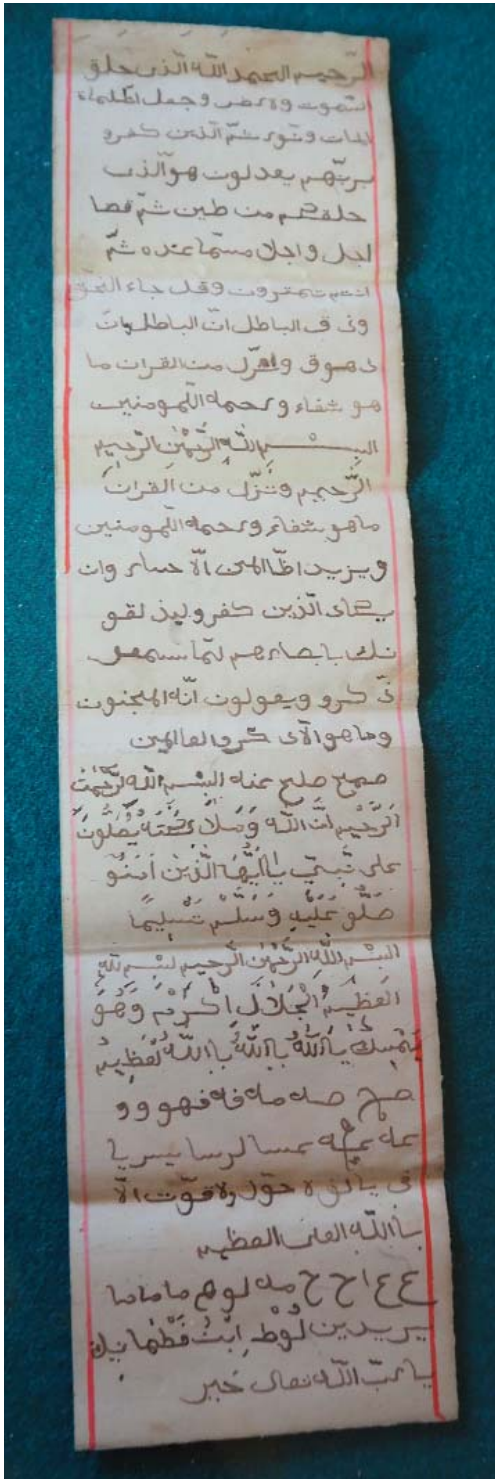 الرّحيم الحمد اللّه الّذى خلق
السّموت ولارض وجعل اظلماة
لمات ونور شمّ الّذين كفرو
بربّهم يعدلون هوالّذى
خلقكم من طين شمّ قصا
اجل واجلا مسمّا عنده شمّ
انتم تمترون وقل جاء الحقّ
وزى ق الباطل انّ الباطل كانَ
ى هوق ونزّل من القران ما
هو شفاء ورحمه اللّمومنين
البسم اللّهِ الرّحْمٰنِ الرّحيم
الرّحيم ونُنزّل من القرانَ
ما هو شفاء ورحمه اللّمومنين
ويزيد اظّالمين الّا حسار وان
يكاد الّذين كفرو ليذ لقو
نك بابصارهم لمّا سمعو
ذّ كرو ويعولون انّه المجنون
وما هو الّا ذ كرو العالمين
صحاح صلح عنه البِسْمِ اللّه لرّحمٰن
اَلرَّحْيمِ انَّ اللّٰه وَمَلاَ ءكَتَهُ يُصَلُّونَ
على نَّبِىّ يااَيُّهَا الَّذِيْنَ اٰمَنُو
صَلُّو عَلَيْهِ وَسَلِّمْ تَسْلِيمًا
البِسْمِ اللّهِ الرَّحْمٰنِ الرَّحيمِ لبِسْمِ للّهِ
العَظِيْمُ الْجَلاَلِ اِكْرٰمْ وَهُوَ
يَااَللّٰهُ يااَللّٰهُ ياا للّٰهُ لْعَظِيْمُ
صح صه مه فه فهو و و
فى يأ حوّل ولا قوّت الّا
باا اللّه العلى العظيم
ع ع ا ح ح مه لوهم ما ماما
يريدين لُوْطِ اِبْتُ فَطْمَا نِيك
يا ربّ اللّه تعالى خبر